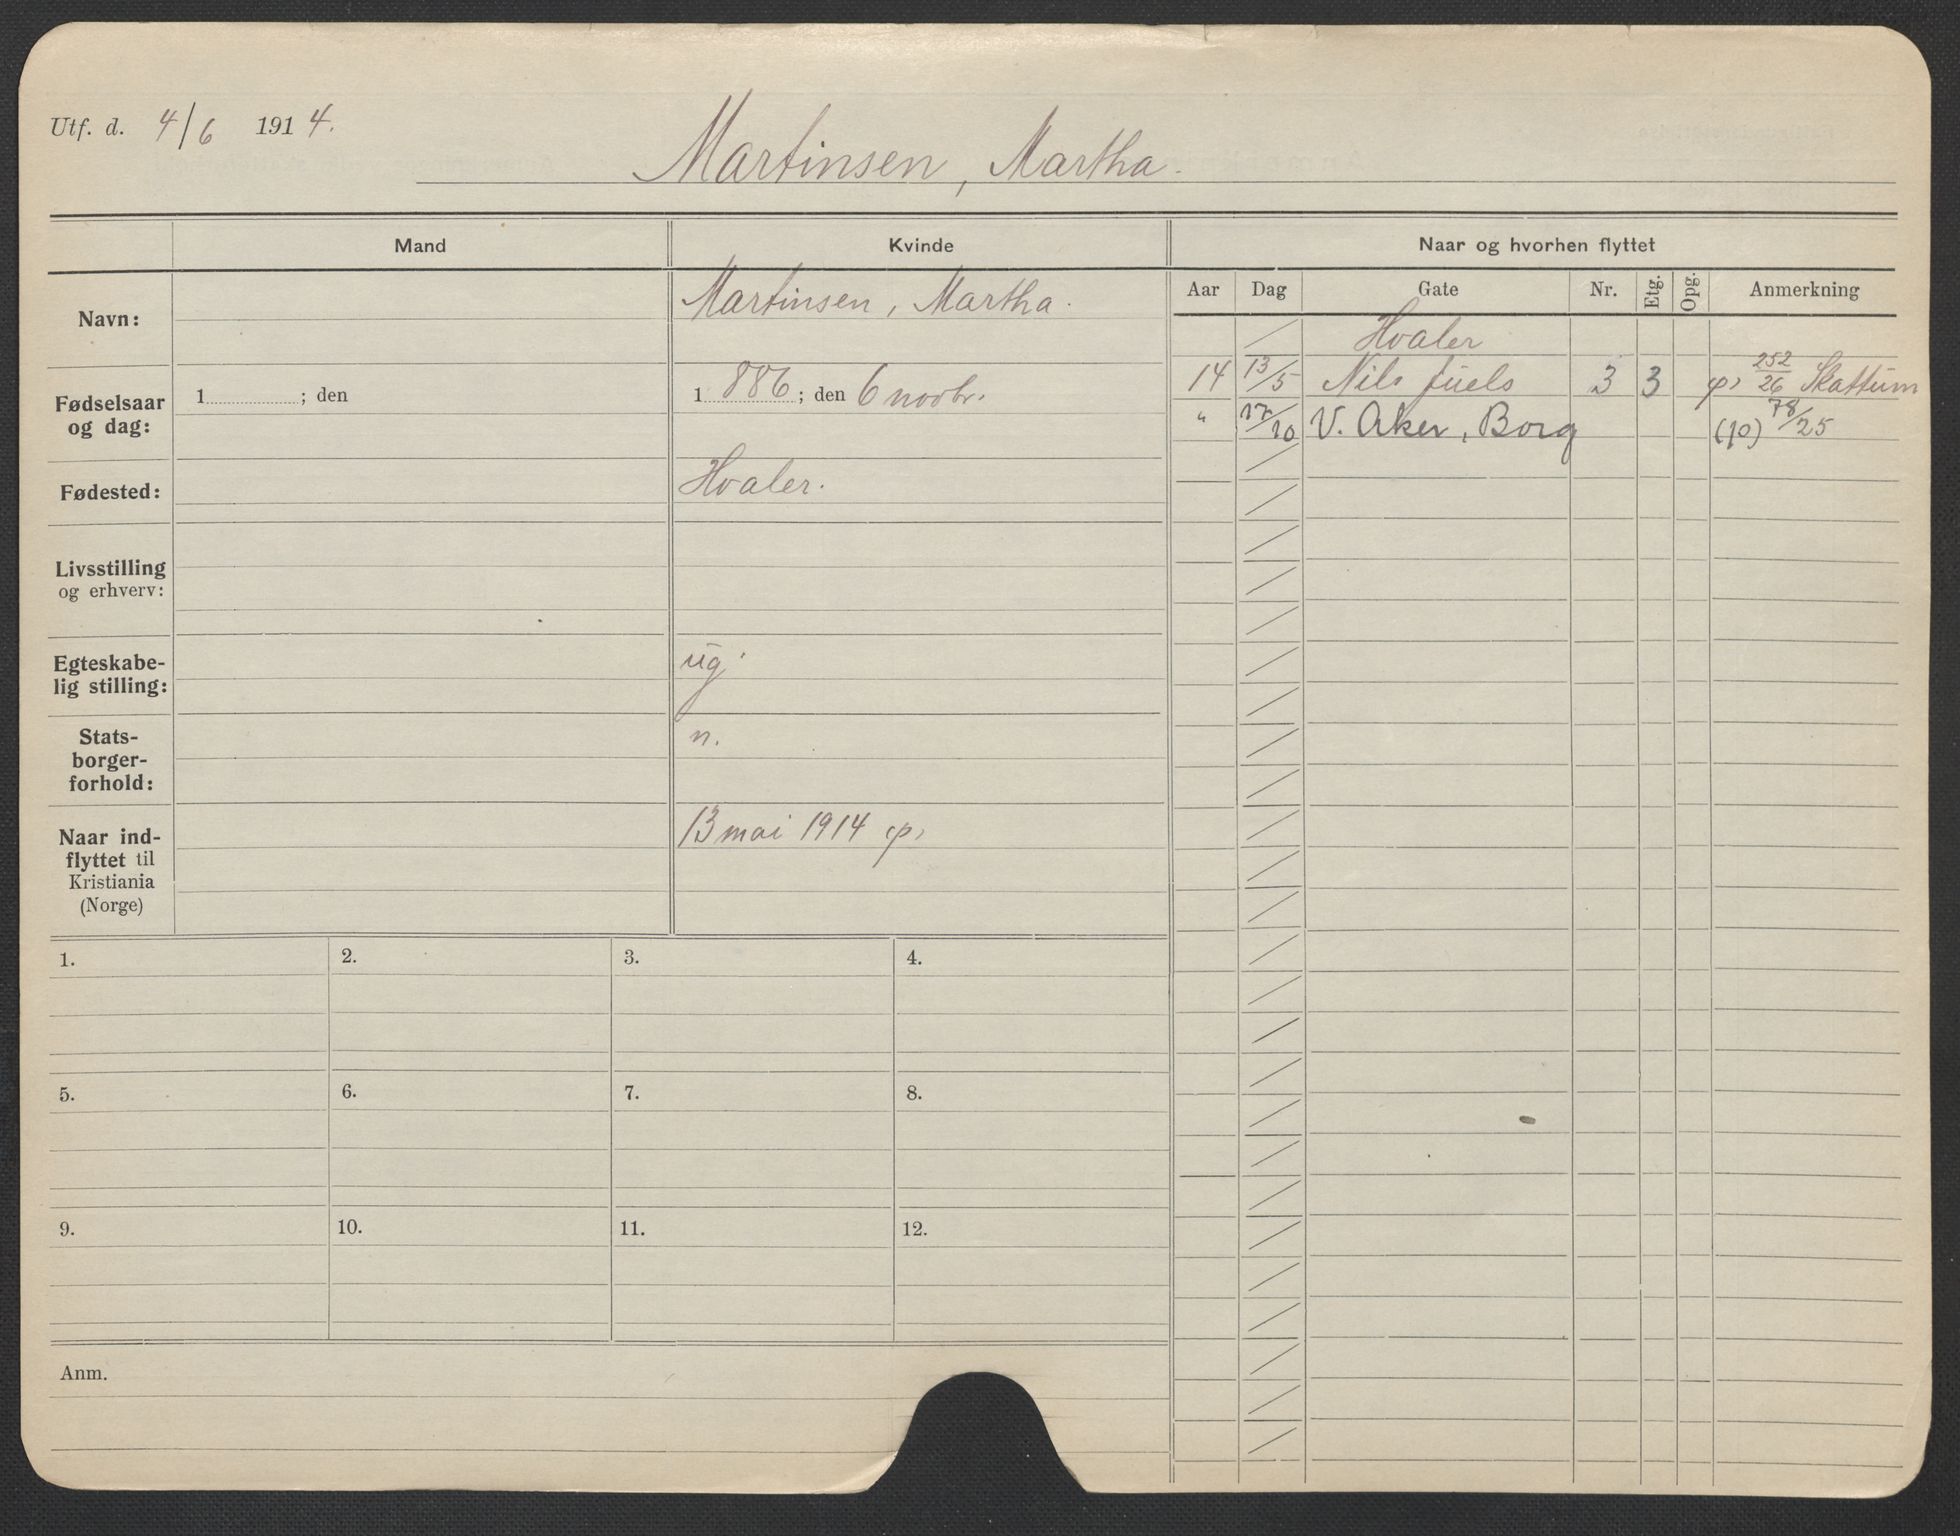 Utf. d. 4/6 1914.
Martinsen, Martha.
Mand
Kvinde
Naar og hvorhen flyttet
Aar Dag Gate Nr. Etg. Opg. Anmerkning
Navn:
Martinsen, Martha.
Hvaler
14 13/5 Nils Juels 3 3 252/26 Skattum
" 17/10 V. Aker, Borg (fo) 78/25
Fødselsaar og dag:
1 ; den
1886; den 6 novbr.
Fødested:
Hvaler.
Livsstilling
og erhverv:
Egteskabe-
lig stilling:
ug.
Stats-
borger-
forhold:
n.
Naar ind-
flyttet til
Kristiania
(Norge)
13 mai 1914
1. 2. 3. 4.
5. 6. 7. 8.
9. 10. 11. 12.
Anm.